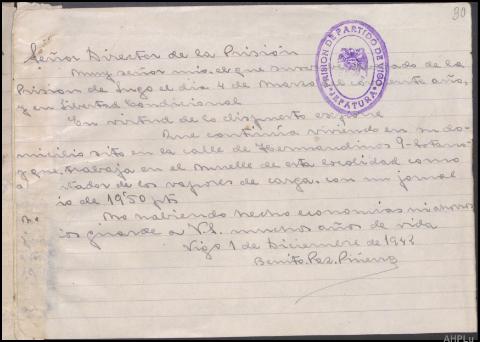 30
Señor Director de la Prisión
PRISION DE PARTIDO DE VIGO
JEFATURA
Muy señor mio, el que de la
Prision de Lugo el dia 4 de Marzo año,
y en libertad condicional
En virtud de lo dispuesto expone
Que continúa viviendo en su do-
micilio sito en la calle de Hermandinos 9-
y que, trabaja en el muelle de esta localidad como
de los vapores de carga. con un jornal
io de 19'50 pts
No habiendo hecho economias ni ahorros
guarde a V.S. muchos años de vida
Vigo 1 de Diciembre de 1943
Benito Paz. Piñeiro
AHPLu